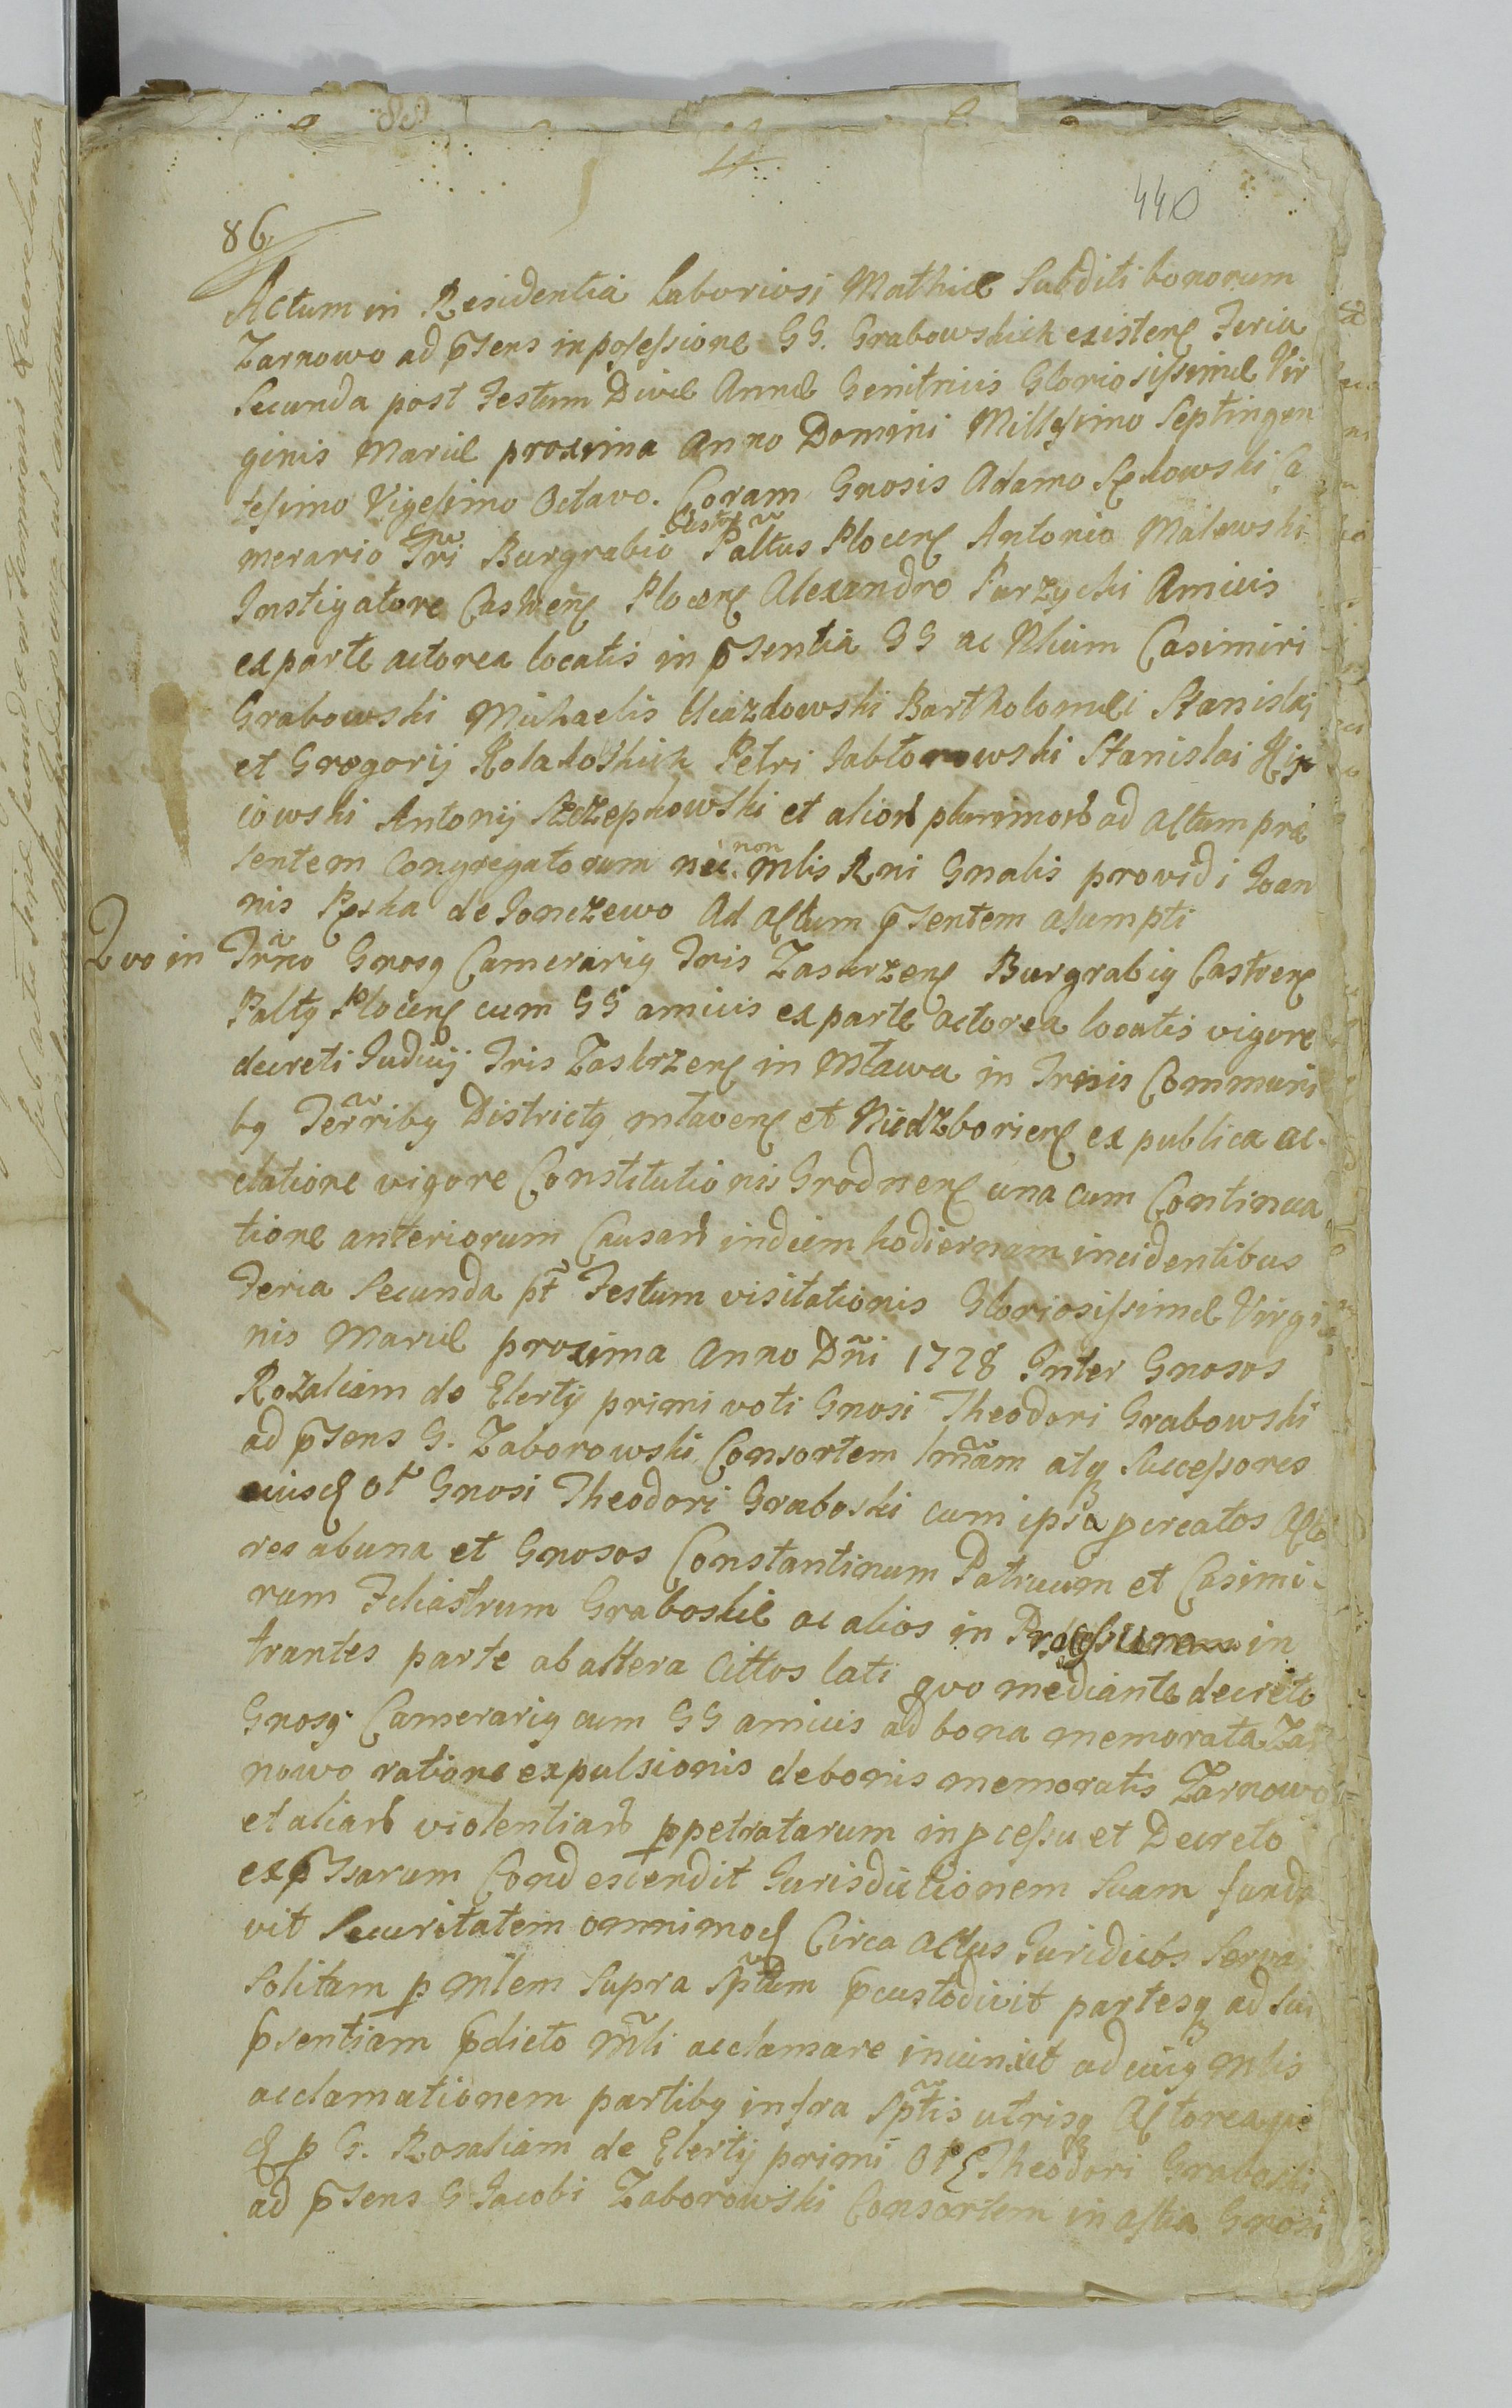 440
86
Actum in Residentia Laboriosi Mathiæ Subditi bonorum
Zarnowo ad p̄sens in possessione GG. Grabowskich existen̄ Feria
Secunda post Festum Divæ Annæ Genitricis Gloriosissimæ Vir
ginis Mariæ proxima Anno Domini Millesimo Septingen
tesimo Vigesimo Octavo. Coram Gnosis Adamo Ca
merario Tri Burgrabio Paltus Plocen̄ Antonio Milewski
Instigatore Castren̄ Plocen̄ Alexandro Parzycki Amicis
ex parte actorea locatis in p̄sentia GG ac Nlium Casimiri
Grabowski Michaelis Uiazdowski Bartholomæi Stanislai
et Gregorij Kolakoskich Petri Jabłonowski Stanislai
Antonij et alior̄ plurimor̄ ad actum præ
sentem Congregatorum nec non Mlis Rni Gnalis providi Joan
nis de Jonczewo Ad actum p̄sentem assumpti
Quo in Trño Gnosq Camerariq Tris Zaskrzen̄ Burgrabiq Castren̄
Paltq Plocen̄ cum GG amicis ex parte actorea locatis vigore
decreti Judicij Tris Zaskrzen̄ in Mława in Trnis Communi
bq Terribq Districtq mlaven̄ et Niedzborien̄ ex publica ac-
clatione vigore Constitutionis Grodnen̄ una cum Continua
tione anteriorum Causar̄ in diem hodiernam incidentibus
Feria Secunda pt̃ Festum visitationis Gloriosissimæ Virgi
nis Mariæ proxima Anno Dñi 1728 Inter Gnosos
Rozaliam de Elerty primi voti Gnosi Theodori Grabowski
ad p̄sens G. Zaborowski Consortem atq Successores
eiusđ ol̃ Gnosi Theodori Graboski cum ipsa pcreatos Acto
res ab una et Gnosos Constantinum Patruum et Casimi-
rum Filiastrum Graboskie ac alios in Processu in
trantes parte ab altera Cittos lati quo mediante decreto
Gnosq Camerariq cum GG amicis ad bona memorata Zar
nowo ratione expulsionis de bonis memoratis Zarnowo
et aliar̄ violentiar̄ ppetratarum in pcessu et Decreto
exp̄ssarum Condescendit Jurisdictionem suam funda
vit Securitatem omnimođ Circa actus Juridicos servai
solitam p Mlem supra sptum p̄custodivit partesq ad sui
p̄sentiam p̄dicto Mli acclamare iniunxit ad cuiq Mlis
acclamationem partibq infra sptis utrisq Actorea qui
đ p G. Rosaliam de Elerty primi Theodori Graboski
ad p̄sens G Jacobi Zaborowski Consortem in astia Gnosi